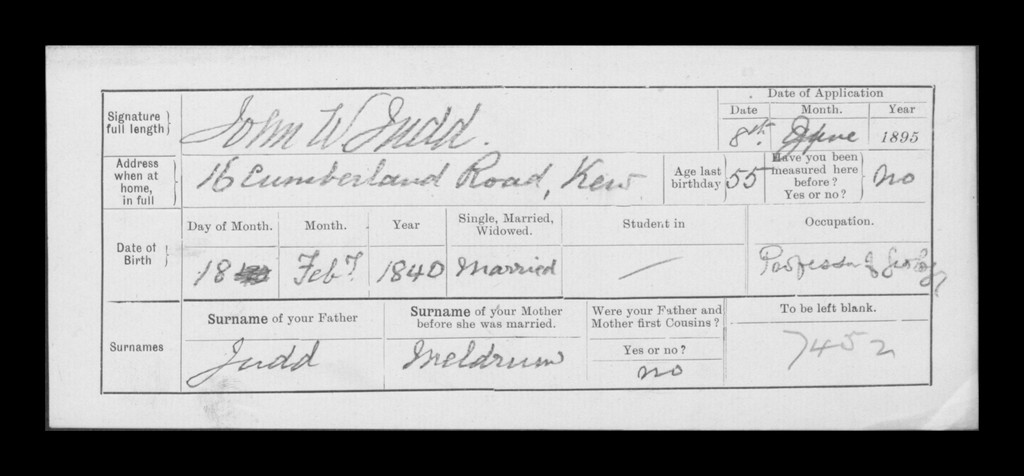 Signature full length
John W Judd.
Date of Application
Date Month. Year
8th. June 1895
Address when at home, in full
16 Cumberland Road, Kew
Age last birthday 55
Have you been measured here before? Yes or no?
No
Date of Birth
Day of Month. Month. Year
18 Feby 1840
Single, Married, Widowed.
Married
Student in
—
Occupation.
Professor of Geology
Surnames
Surname of your Father
Judd
Surname of your Mother before she was married.
Meldrum
Were your Father and Mother first Cousins?
Yes or no?
no
To be left blank.
7452